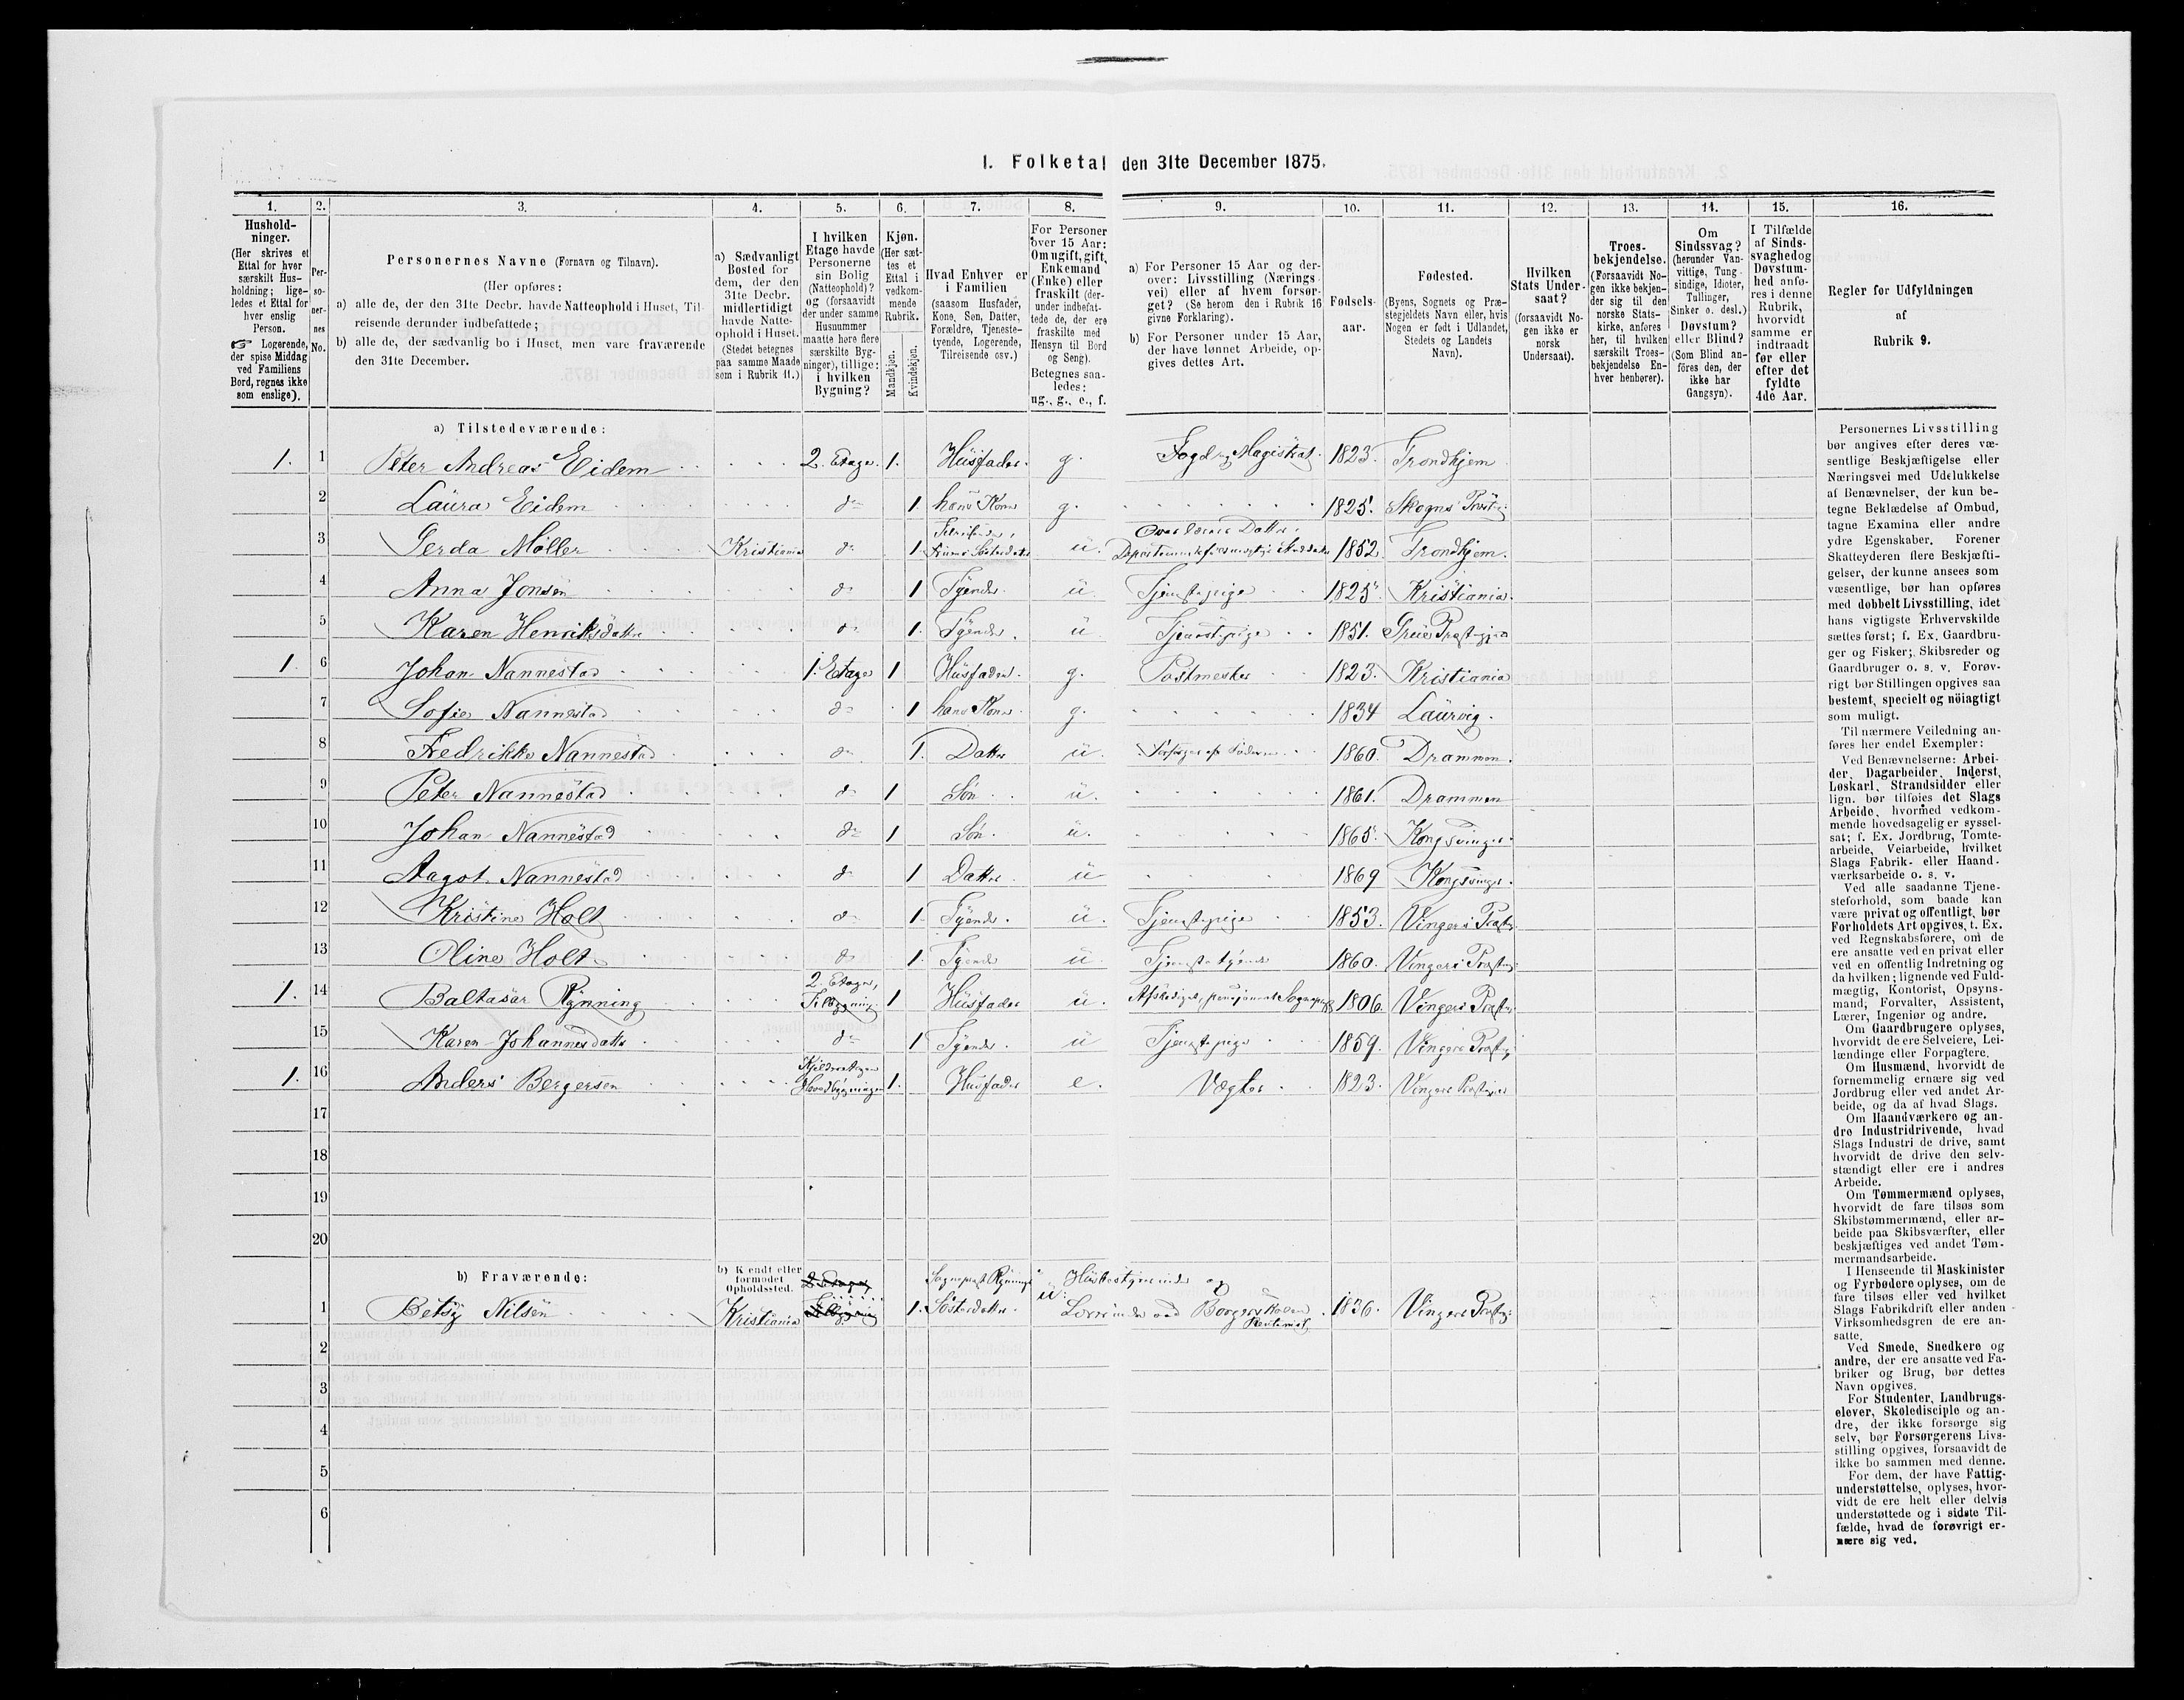 1. Folketal den 31te December 1875.
1. 2. 3. 4. 5. 6. 7. 8. 9. 10. 11. 12. 13. 14. 15. 16.
Hushold-
ninger.
(Her skrives et
Ettal for hver
særskilt Hus-
holdning; lige-
ledes et Ettal for
hver enslig
Person.
☞ Logerende,
der spise Middag
ved Familiens
Bord, regnes ikke
som enslige).
Per-
so-
ner-
nes
No.
Personernes Navne (Fornavn og Tilnavn).
(Her opføres:
a) alle de, der den 31te Decbr. havde Natteophold i Huset, Til-
reisende derunder indbefattede;
b) alle de, der sædvanlig bo i Huset, men vare fraværende
den 31te December.
a) Sædvanligt
Bosted for
dem, der den
31te Decbr.
midlertidigt
havde Natte-
ophold i Huset.
(Stedet betegnes
paa samme Maade
som i Rubrik 11.)
I hvilken
Etage havde
Personerne
sin Bolig
(Natteophold)?
og (forsaavidt
der under samme
Husnummer
maatte høre flere
særskilte Byg-
ninger), tillige:
i hvilken
Bygning?
Kjøn.
(Her sæt-
tes et
Ettal i
vedkom-
mende
Rubrik.
Mandkjøn.
Kvindekjøn.
Hvad Enhver er
i Familien
(saasom Husfader,
Kone, Søn, Datter,
Forældre, Tjeneste-
tyende, Logerende,
Tilreisende osv.)
For Personer
over 15 Aar:
Om ugift, gift,
Enkemand
(Enke) eller
fraskilt (der-
under indbefat-
tede de, der ere
fraskilte med
Hensyn til Bord
og Seng).
Betegnes saa-
ledes:
ug., g., e., f.
a) For Personer 15 Aar og der-
over: Livsstilling (Nærings-
vei) eller af hvem forsør-
get? (Se herom den i Rubrik 16
givne Forklaring).
b) For Personer under 15 Aar,
der have lønnet Arbeide, op-
gives dettes Art.
Fødsels-
aar.
Fødested.
(Byens, Sognets og Præ-
stegjeldets Navn eller, hvis
Nogen er født i Udlandet,
Stedets og Landets
Navn).
Hvilken
Stats Under-
saat?
(forsaavidt No-
gen ikke er
norsk
Undersaat).
Troes-
bekjendelse.
(Forsaavidt No-
gen ikke bekjen-
der sig til den
norske Stats-
kirke, anføres
her, til hvilken
særskilt Troes-
bekjendelse En-
hver henhører).
Om
Sindssvag?
(herunder Van-
vittige, Tung-
sindige, Idioter,
Tullinger,
Sinker o. desl.)
Døvstum?
eller Blind?
(Som Blind an-
føres den, der
ikke har
Gangsyn).
I Tilfælde
af Sinds-
svaghed og
Døvstum-
hed anfø-
res i denne
Rubrik,
hvorvidt
samme er
indtraadt
før eller
efter det
fyldte
4de Aar.
Regler for Udfyldningen
af
Rubrik 9.
a) Tilstedeværende:
1. 1 Peter Andreas Eidem 2. Etage. 1. Husfader. g. Fogd og Magistrat. 1823. Trondhjem
2 Laura Eidem do 1 hans Kone g. 1825. Skogns Præstg.
3 Gerda Møller Kristiania do 1 Søsterdatter u. Datter 1852. Trondhjem.
4 Anna Jonsen do 1 Tyende. u. Tjenestepige 1825. Kristiania.
5 Karen Henriksdatter do 1. Tyende. u. Tjenestepige 1851. Grue Præstegj.
1. 6 Johan Nannestad 1. Etage 1 Husfader. g. Postmester 1823. Kristiania
7 Sofie Nannestad do 1 hans Kone. g. 1834 Laurvig.
8 Fredrikke Nannestad do 1. Datter u. Forsørges af Faderen 1860. Drammen.
9 Peter Nannestad do 1 Søn u. 1861. Drammen
10 Johan Nannestad do 1 Søn. u. 1865. Kongsvinger.
11 Aagot Nannestad do 1 Datter u 1869 Kongsvinger.
12 Kristine Holt do 1. Tyende. u. Tjenestepige 1853. Vingers Præstg.
13 Oline Holt do 1. Tyende u. Tjenestetyende 1860. Vingers Præstg.
1. 14 Baltasar Rynning 2. Etage, Tilbygning. 1 Husfader u. Afskediget, pensioneret Sogneprest 1806. Vingers Præstg.
15 Karen Johannesdatter do 1 Tyende. u Tjenestepige 1859. Vingers Præstg.
1. 16 Anders Bergersen Kjelderetagen Hovedbygningen 1. Husfader e. Vægter 1823. Vingers Præstegjeld
17
18
19
20
b) Fraværende:
b) Kendt eller
formodet
Opholdssted.
1 Betsy Nilsen Kristiania 2. Etage Tilbygning 1. Sogneprest Rynnings Søsterdatter. u. Husbestyrerinde og Lærerinde ved Borgerskolen 1836. Vingers Præstg.
2
3
4
5
6
Personernes Livsstilling
bør angives efter deres væ-
sentlige Beskjæftigelse eller
Næringsvei med Udelukkelse
af Benævnelser, der kun be-
tegne Beklædelse af Ombud,
tagne Examina eller andre
ydre Egenskaber. Forener
Skatteyderen flere Beskjæfti-
gelser, der kunne ansees som
væsentlige, bør han opføres
med dobbelt Livsstilling, idet
hans vigtigste Erhvervskilde
sættes først; f. Ex. Gaardbru-
ger og Fisker; Skibsreder og
Gaardbruger o. s. v. Forøv-
rigt bør Stillingen opgives saa
bestemt, specielt og nöiagtigt
som muligt.
Til nærmere Veiledning an-
føres her endel Exempler:
Ved Benævnelserne: Arbei-
der, Dagarbeider, Inderst,
Løskarl, Strandsidder eller
lign. bør tilføies det Slags
Arbeide, hvormed vedkom-
mende hovedsagelig er syssel-
sat; f. Ex. Jordbrug, Tomte-
arbeide, Veiarbeide, hvilket
Slags Fabrik- eller Haand-
værksarbeide o. s. v.
Ved alle saadanne Tjene-
steforhold, som baade kan
være privat og offentligt, bør
Forholdets Art opgives, t. Ex.
ved Regnskabsførere, om de
ere ansatte ved en privat eller
ved en offentlig Indretning og
da hvilken; lignende ved Fuld-
mægtig, Kontorist, Opsyns-
mand, Forvalter, Assistent,
Lærer, Ingeniør og andre.
Om Gaardbrugere oplyses,
hvorvidt de ere Selveiere, Lei-
lændinge eller Forpagtere.
Om Husmænd, hvorvidt de
fornemmelig ernære sig ved
Jordbrug eller ved andet Ar-
beide, og da af hvad Slags.
Om Haandværkere og an-
dre Industridrivende, hvad
Slags Industri de drive, samt
hvorvidt de drive den selv-
stændigt eller ere i andres
Arbeide.
Om Tømmermænd oplyses,
hvorvidt de fare tilsøs som
Skibstømmermænd, eller ar-
beide paa Skibsværfter, eller
beskjæftiges ved andet Tøm-
mermandsarbeide.
I Henseende til Maskinister
og Fyrbødere oplyses, om de
fare tilsøs eller ved hvilket
Slags Fabrikdrift eller anden
Virksomhedsgren de ere an-
satte.
Ved Smede, Snedkere og
andre, der ere ansatte ved Fa-
briker og Brug, bør dettes
Navn opgives.
For Studenter, Landbrugs-
elever, Skoledisciple og an-
dre, der ikke forsørge sig
selv, bør Forsørgerens Livs-
stilling opgives, forsaavidt de
ikke bo sammen med denne.
For dem, der have Fattig-
understøttelse, oplyses, hvor-
vidt de ere helt eller delvis
understøttede og i sidste Til-
fælde, hvad de forøvrigt er-
nære sig ved.